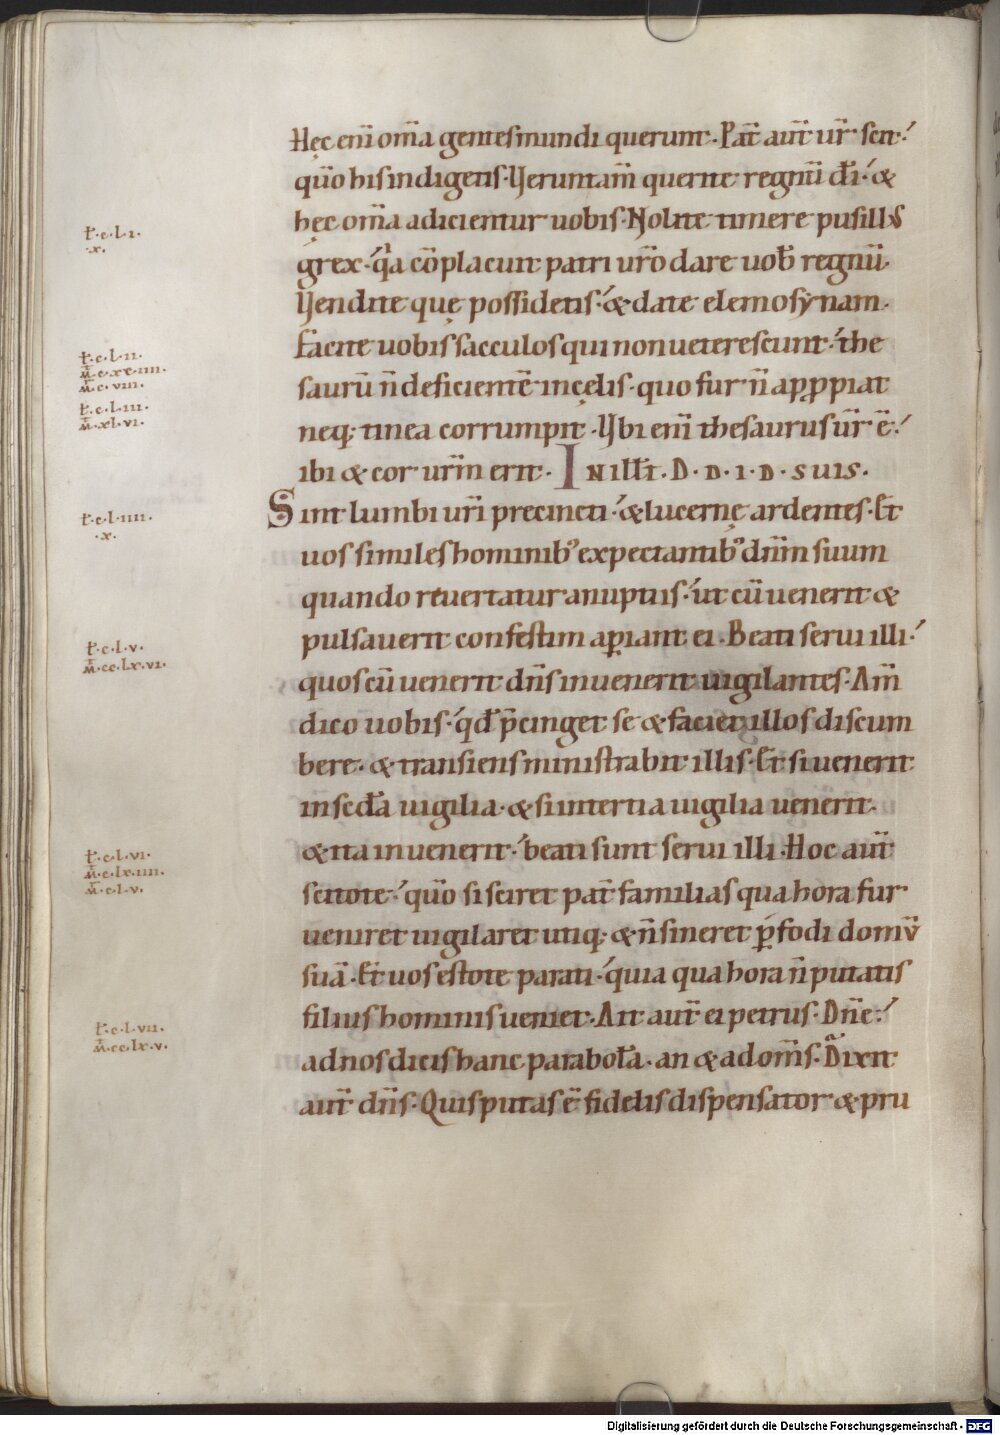 Hęc eni̅ om̅a gentes mundi querunt. Pat̅ aut̅ ur̅ scit.
quo̅ his indigetis. Veruntam̅ querite regnu̅ di̅. &
hęc om̅a adicientur uobis. Nolite timere pusillus
grex. qa co̅placuit patri ur̅o dare uob̅ regnu̅.
Vendite quę possidetis. & date elemosynam.
Facite uobis sacculos qui non ueterescunt. the
sauru̅ n̅ deficiente̅ in cęlis. quo fur n̅ appropiat
neq; tinea corrumpit. Vbi eni̅ thesaurus ur̅ e̅.
ibi & cor ur̅m erit. IN ill̅ t̅. D. D. I. D. SUIS.
Sint lumbi ur̅i precincti. & lucernę ardentes. Et
uos similes hominib' expectantib' dn̅m suum
quando reuertatur a nuptiis. ut cu̅ uenerit &
pulsauerit confestim aperiant ei. Beati serui illi.
quos cu̅ uenerit dn̅s inuenerit uigilantes. Am̅
dico uobis. qd̅ p̅cinget se & faciet illos discum
bere. & transiens ministrabit illis. Et si uenerit
in scd̅a uigilia. & si in tertia uigilia uenerit.
& ita inuenerit. beati sunt serui illi. Hoc aut̅
scitote. quo̅ si sciret pat̅ familias qua hora fur
ueniret uigilaret utiq; & n̅ sineret p̲fodi domu̅
sua̅. Et uos estote parati. quia qua hora n̅ putatis
filius hominis ueniet. Ait aut̅ ei petrus. Dn̅e.
ad nos dicis hanc parabola̅. an & ad om̅s. Dixit
aut̅ dn̅s. Quis putas e̅ fidelis dispensator & pru
ł.c.l.i.
.x.
ł.c.l.ii.
M̅.c.xx.iiii.
M̅.c.viii.
ł.c.l.iii.
M̅.xl.vi.
ł.c.l.iiii.
.x.
ł.c.l.v.
M̅.cc.lx.vi.
ł.c.l.vi.
M̅.c.lx.iiii.
M̅.c.l.v.
ł.c.l.vii.
M̅.cc.lx.v.
Digitalisierung gefördert durch die Deutsche Forschungsgemeinschaft - DFG